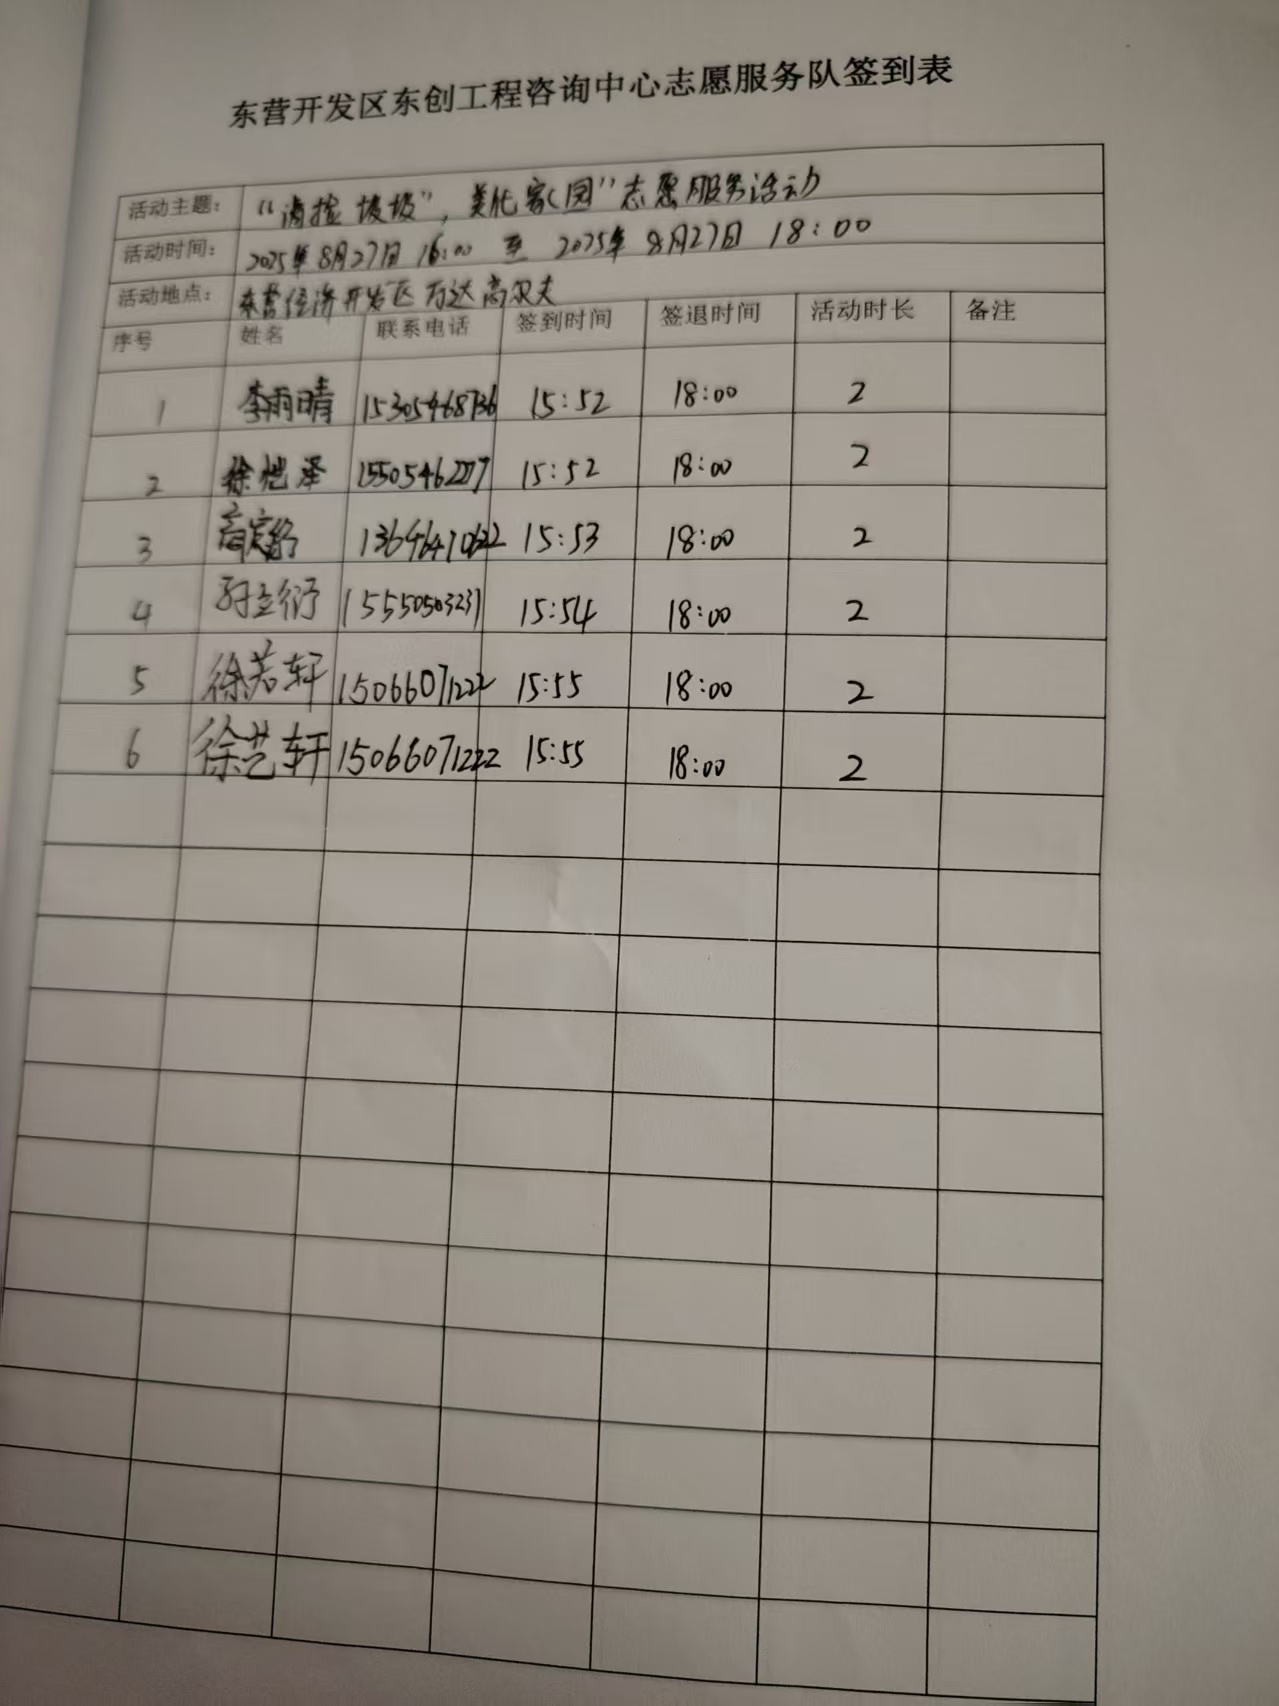 东营开发区东创工程咨询中心志愿服务队签到表
活动主题: “清捡垃圾”, 美化家园”志愿服务活动
活动时间: 2025年8月27日 16:00 至 2025年8月27日 18:00
活动地点: 东营经济开发区万达高尔夫
序号 姓名 联系电话 签到时间 签退时间 活动时长 备注
1 李雨晴 15305468736 15:52 18:00 2
2 徐恺泽 15:52 18:00 2
3 15:53 18:00 2
4 15550503231 15:54 18:00 2
5 徐若轩 15066071222 15:55 18:00 2
6 徐艺轩 15066071222 15:55 18:00 2